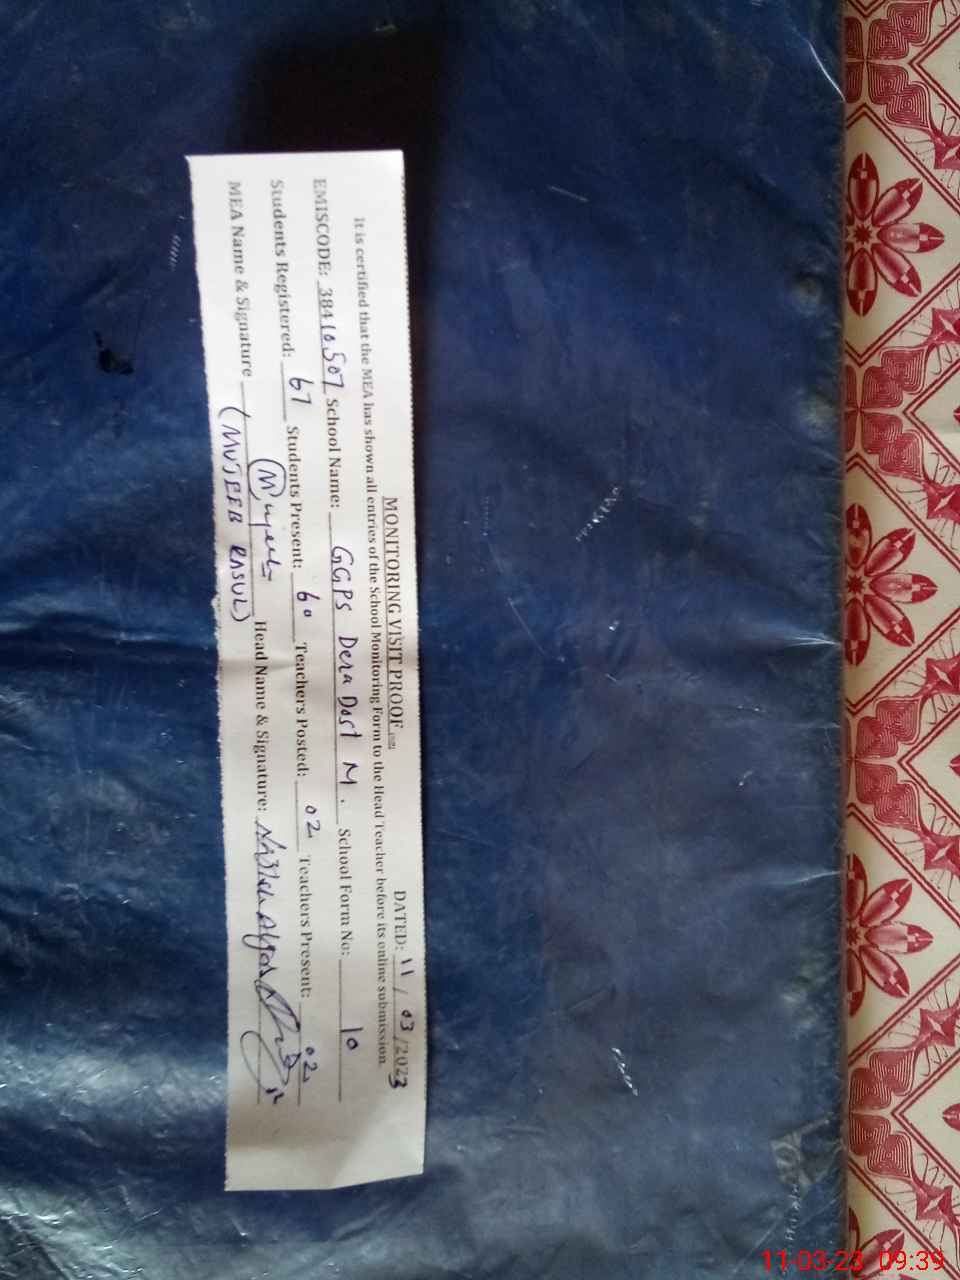 MONITORING VISIT PROOF
DATED: 11 / 03 / 2023
It is certified that the MEA has shown all entries of the School Monitoring Form to the Head Teacher before its online submission.
EMISCODE: 38410507 School Name: GGPS Dera Dost M. School Form No: 10
Students Registered: 67 Students Present: 60 Teachers Posted: 02 Teachers Present: 02
MEA Name & Signature Mujeeb Head Name & Signature:
(MUJEEB RASUL)
11-03-23 09:39